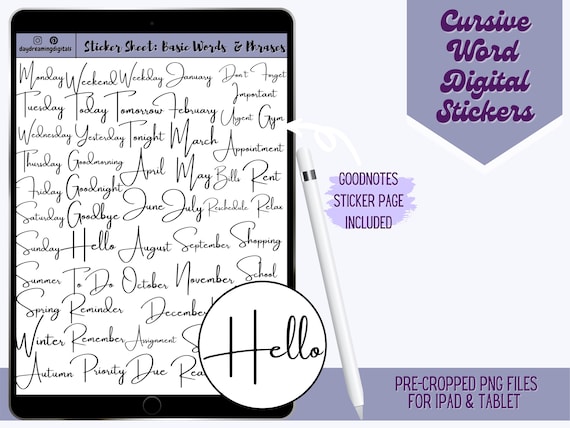 daydreamingdigitals
Sticker Sheet: Basic Words & Phrases
Monday Weekend Weekday January Don't Forget
Important
Tuesday Today Tomorrow February Urgent Gym
Wednesday Yesterday Tonight March Appointment
Thursday Goodmorning April May Bills Rent
Friday Goodnight
Saturday Goodbye June July Reschedule Relax
Sunday Hello August September Shopping
Summer To Do October November School
Spring Reminder December
Winter Remember Assignment
Autumn Priority Due
Hello
Cursive
Word
Digital
Stickers
GOODNOTES
STICKER PAGE
INCLUDED
PRE-CROPPED PNG FILES
FOR IPAD & TABLET